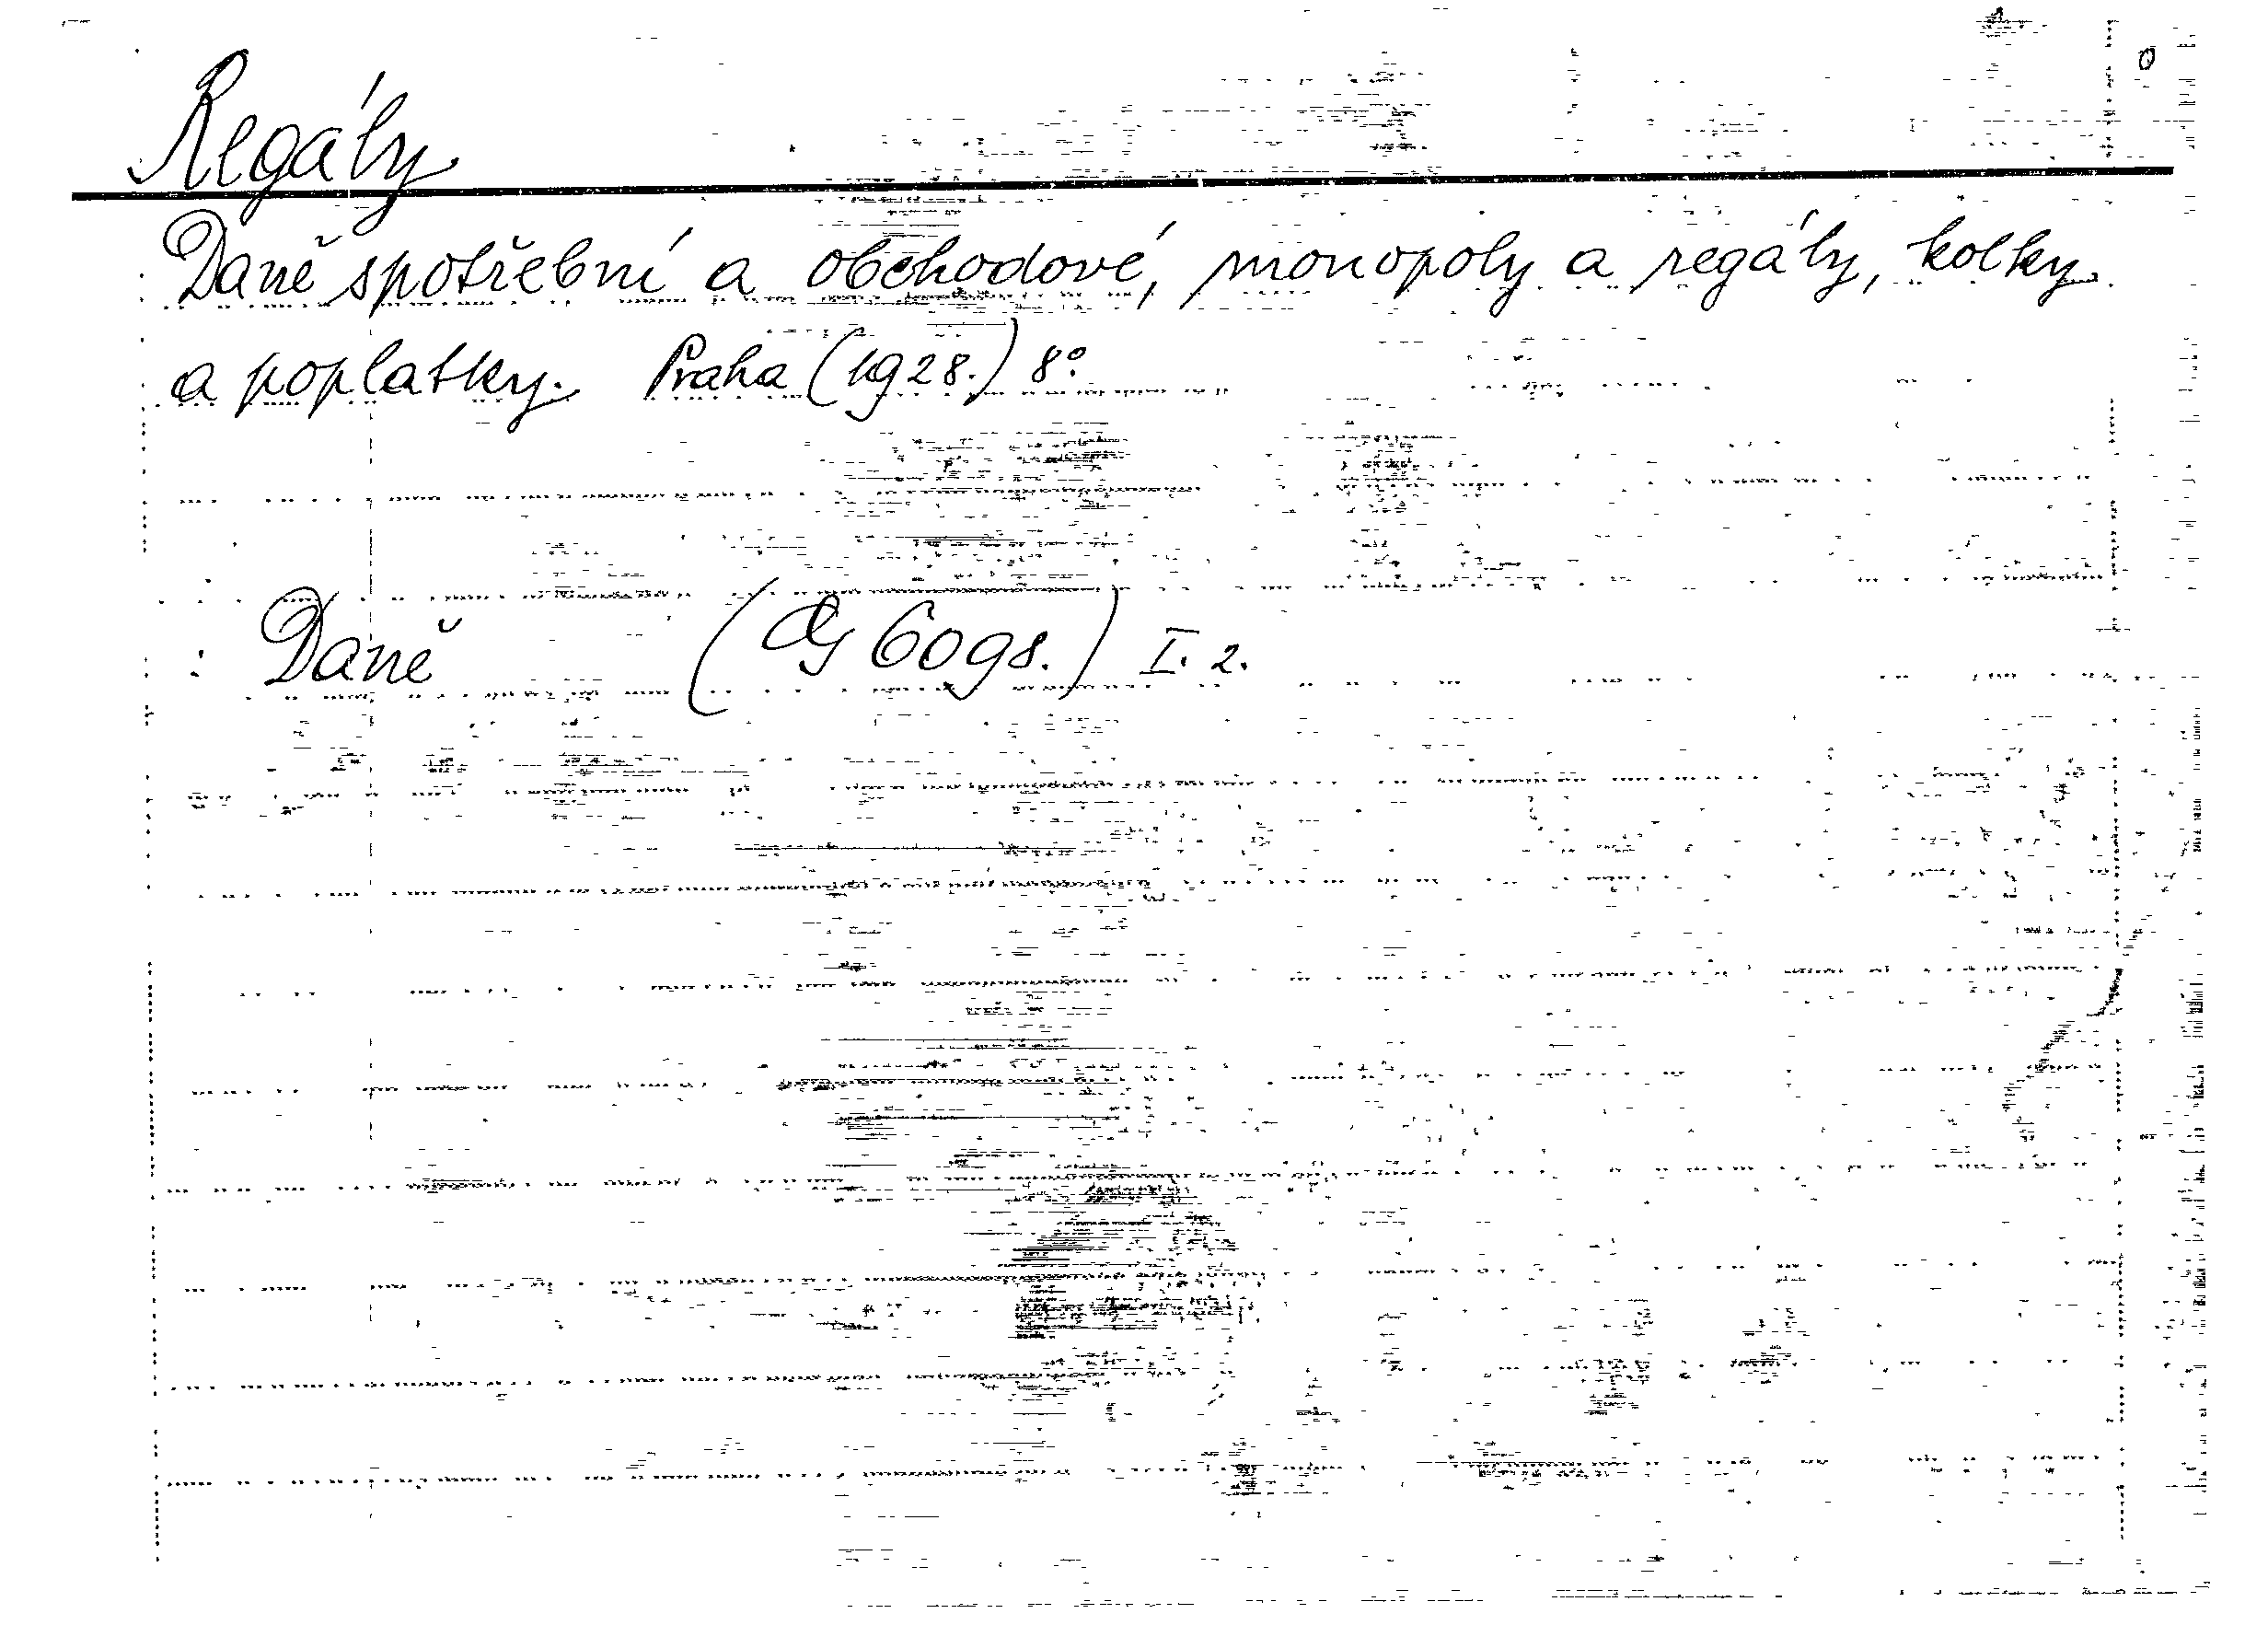 Regály
Daně spotřební a obchodové, monopoly a regály, kolky
a poplatky. Praha (1928.) 8°.
: Daně (Og 6098.) I. 2.